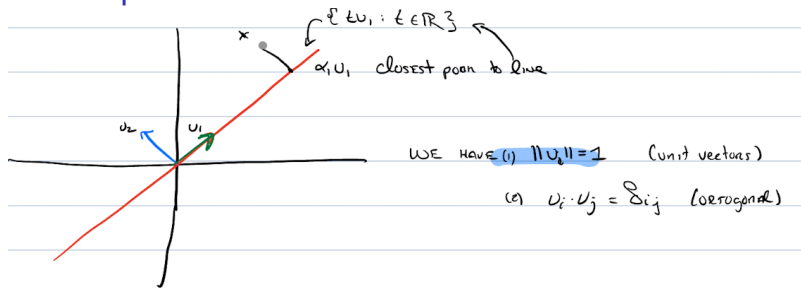 { t u₁ : t ∈ ℝ }
x
α₁ u₁ closest poin to line
u₂
u₁
WE HAVE (1) ||u_i|| = 1 (unit vectors)
(2) u_i · u_j = δ_ij (ortogonal)